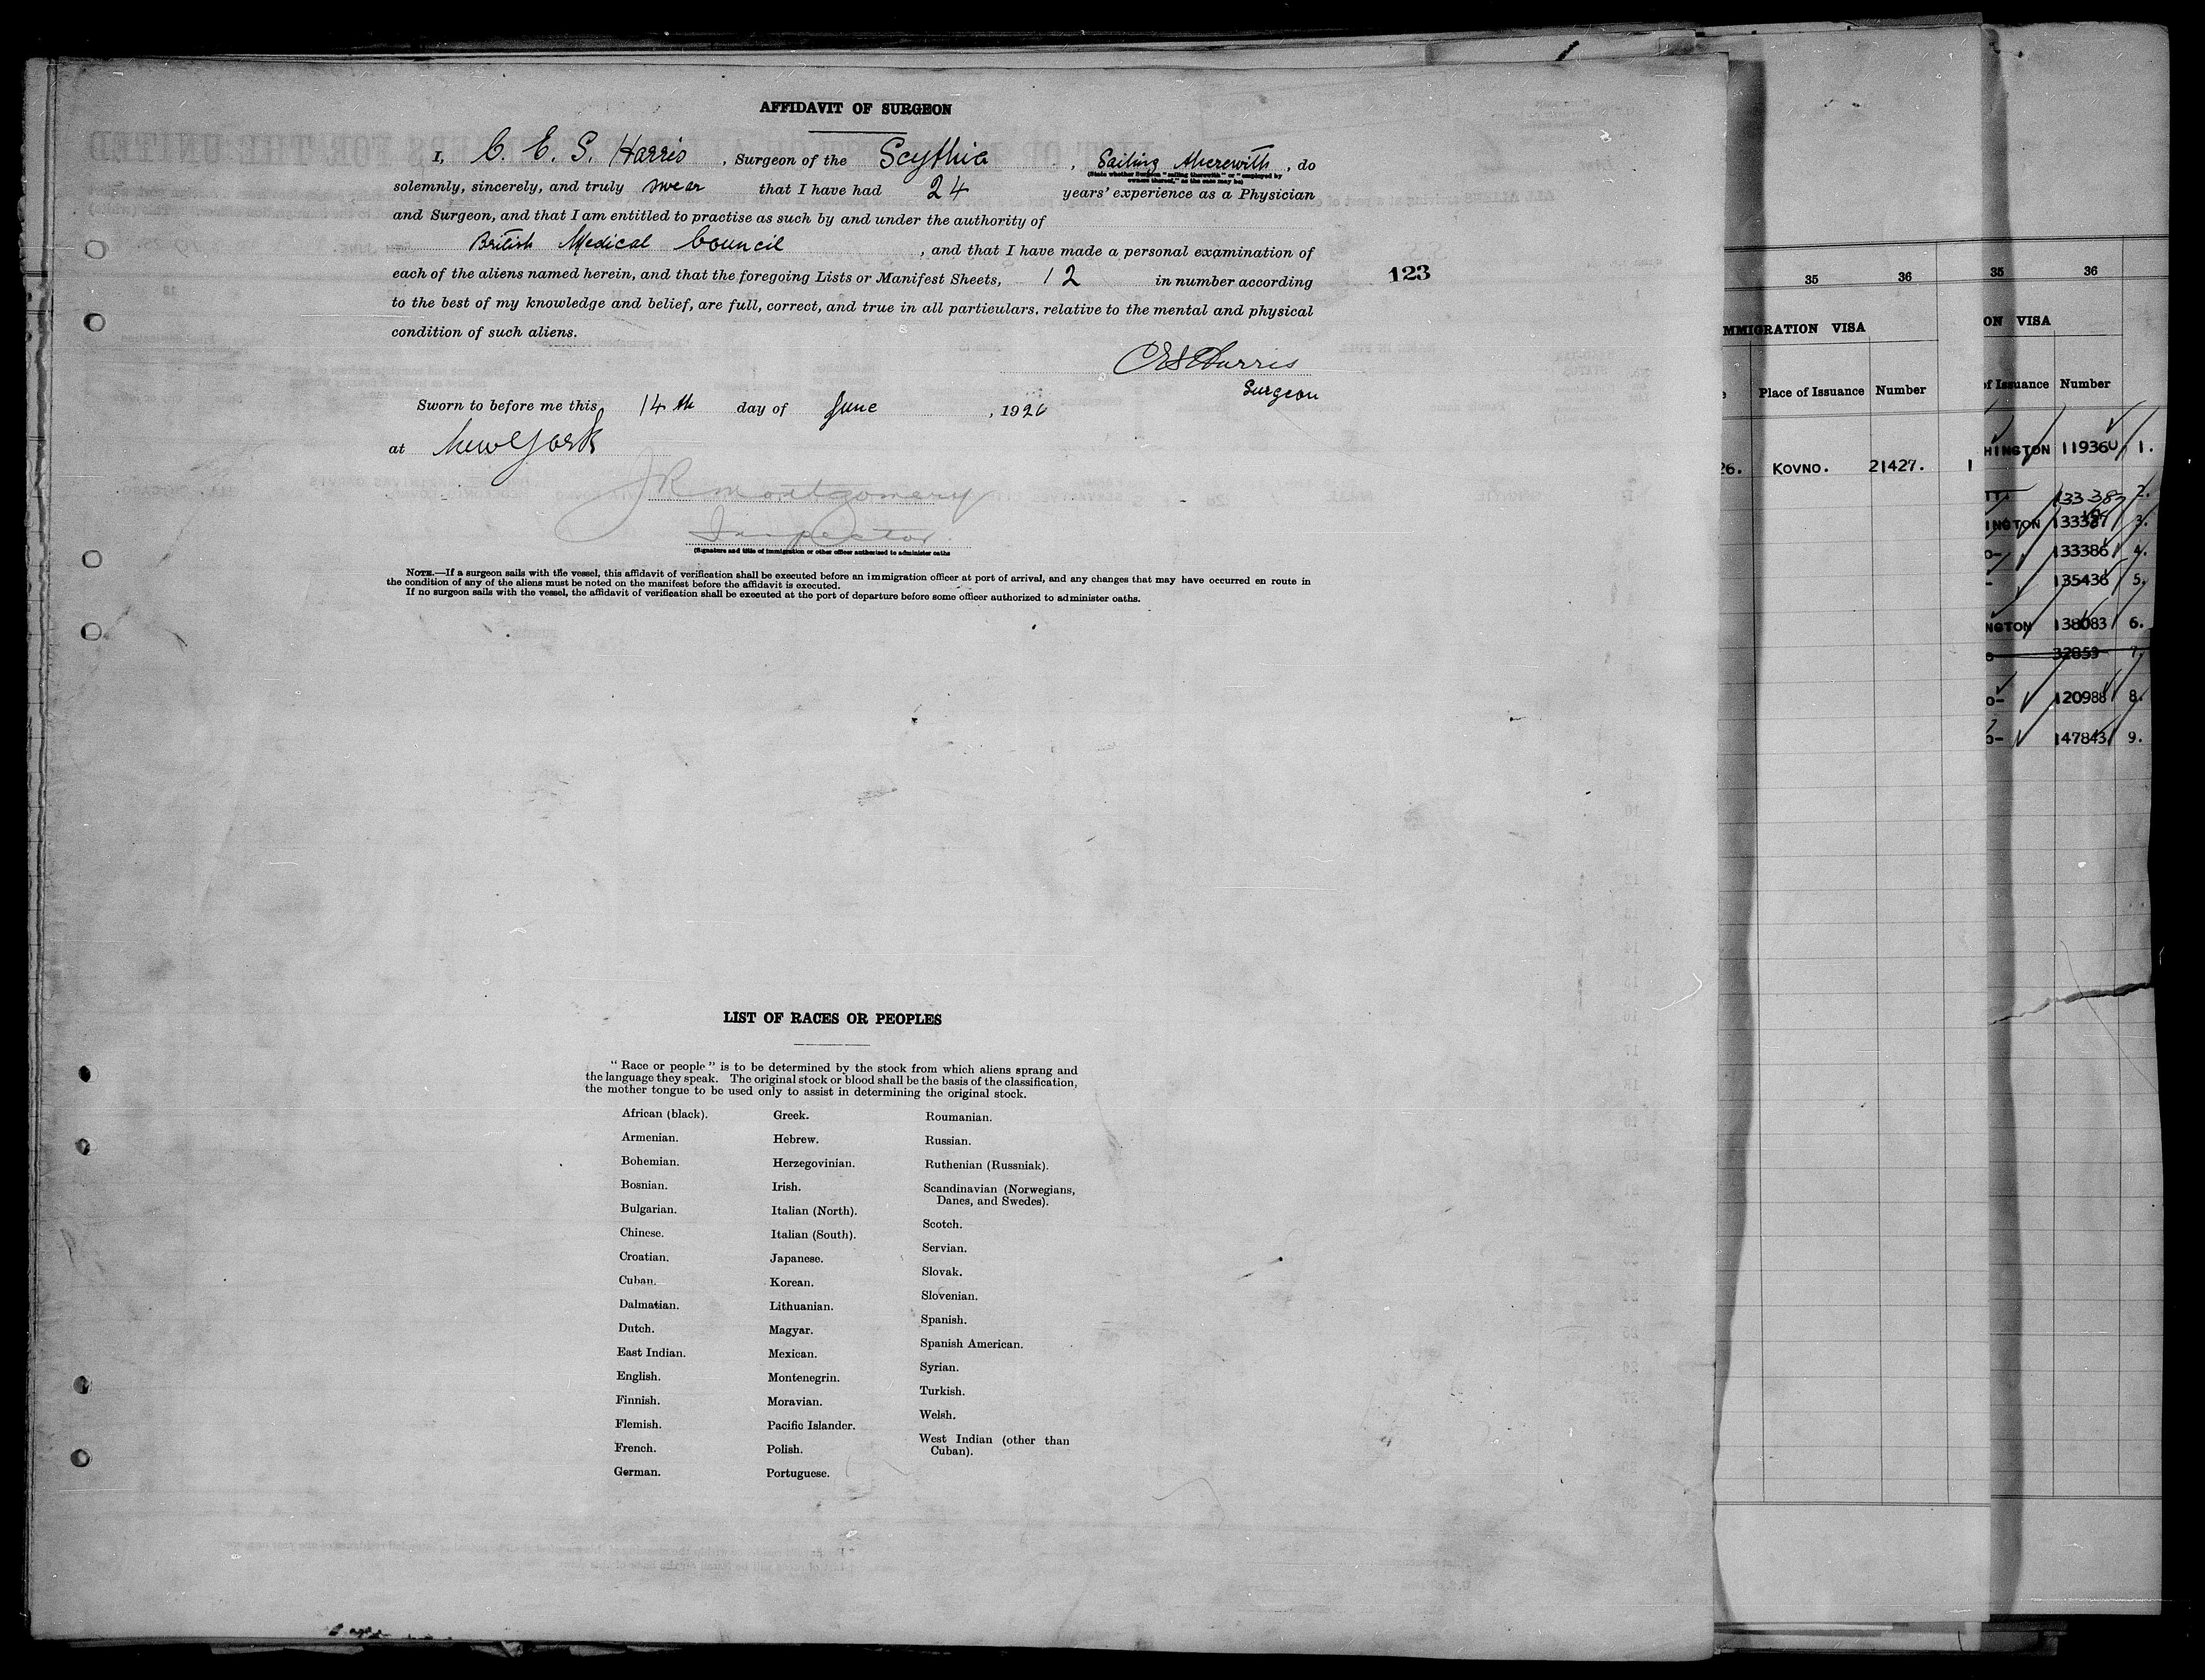 AFFIDAVIT OF SURGEON
I, C. E. S. Harris, Surgeon of the Scythia, Sailing therewith, do
(State whether Surgeon "sailing therewith" or "employed by
owners thereof," as the case may be)
solemnly, sincerely, and truly swear that I have had 24 years' experience as a Physician
and Surgeon, and that I am entitled to practise as such by and under the authority of
British Medical Council, and that I have made a personal examination of
each of the aliens named herein, and that the foregoing Lists or Manifest Sheets, 12 in number according
123
to the best of my knowledge and belief, are full, correct, and true in all particulars, relative to the mental and physical
condition of such aliens.
CES Harris
Surgeon
Sworn to before me this 14th day of June, 1926
at New York
JR Montgomery
Inspector
(Signature and title of immigration or other officer authorized to administer oaths
NOTE.—If a surgeon sails with the vessel, this affidavit of verification shall be executed before an immigration officer at port of arrival, and any changes that may have occurred en route in
the condition of any of the aliens must be noted on the manifest before the affidavit is executed.
If no surgeon sails with the vessel, the affidavit of verification shall be executed at the port of departure before some officer authorized to administer oaths.
LIST OF RACES OR PEOPLES
"Race or people" is to be determined by the stock from which aliens sprang and
the language they speak. The original stock or blood shall be the basis of the classification,
the mother tongue to be used only to assist in determining the original stock.
African (black).
Armenian.
Bohemian.
Bosnian.
Bulgarian.
Chinese.
Croatian.
Cuban.
Dalmatian.
Dutch.
East Indian.
English.
Finnish.
Flemish.
French.
German.
Greek.
Hebrew.
Herzegovinian.
Irish.
Italian (North).
Italian (South).
Japanese.
Korean.
Lithuanian.
Magyar.
Mexican.
Montenegrin.
Moravian.
Pacific Islander.
Polish.
Portuguese.
Roumanian.
Russian.
Ruthenian (Russniak).
Scandinavian (Norwegians,
Danes, and Swedes).
Scotch.
Servian.
Slovak.
Slovenian.
Spanish.
Spanish American.
Syrian.
Turkish.
Welsh.
West Indian (other than
Cuban).
35 36
MMIGRATION VISA
Place of Issuance Number
26. KOVNO. 21427. 1
35 36
ON VISA
of Issuance Number
HINGTON 119360 1.
2.
INGTON 133387 3.
O- 133386 4.
- 135436 5.
NGTON 138083 6.
32853 7.
O- 120988 8.
O- 147843 9.